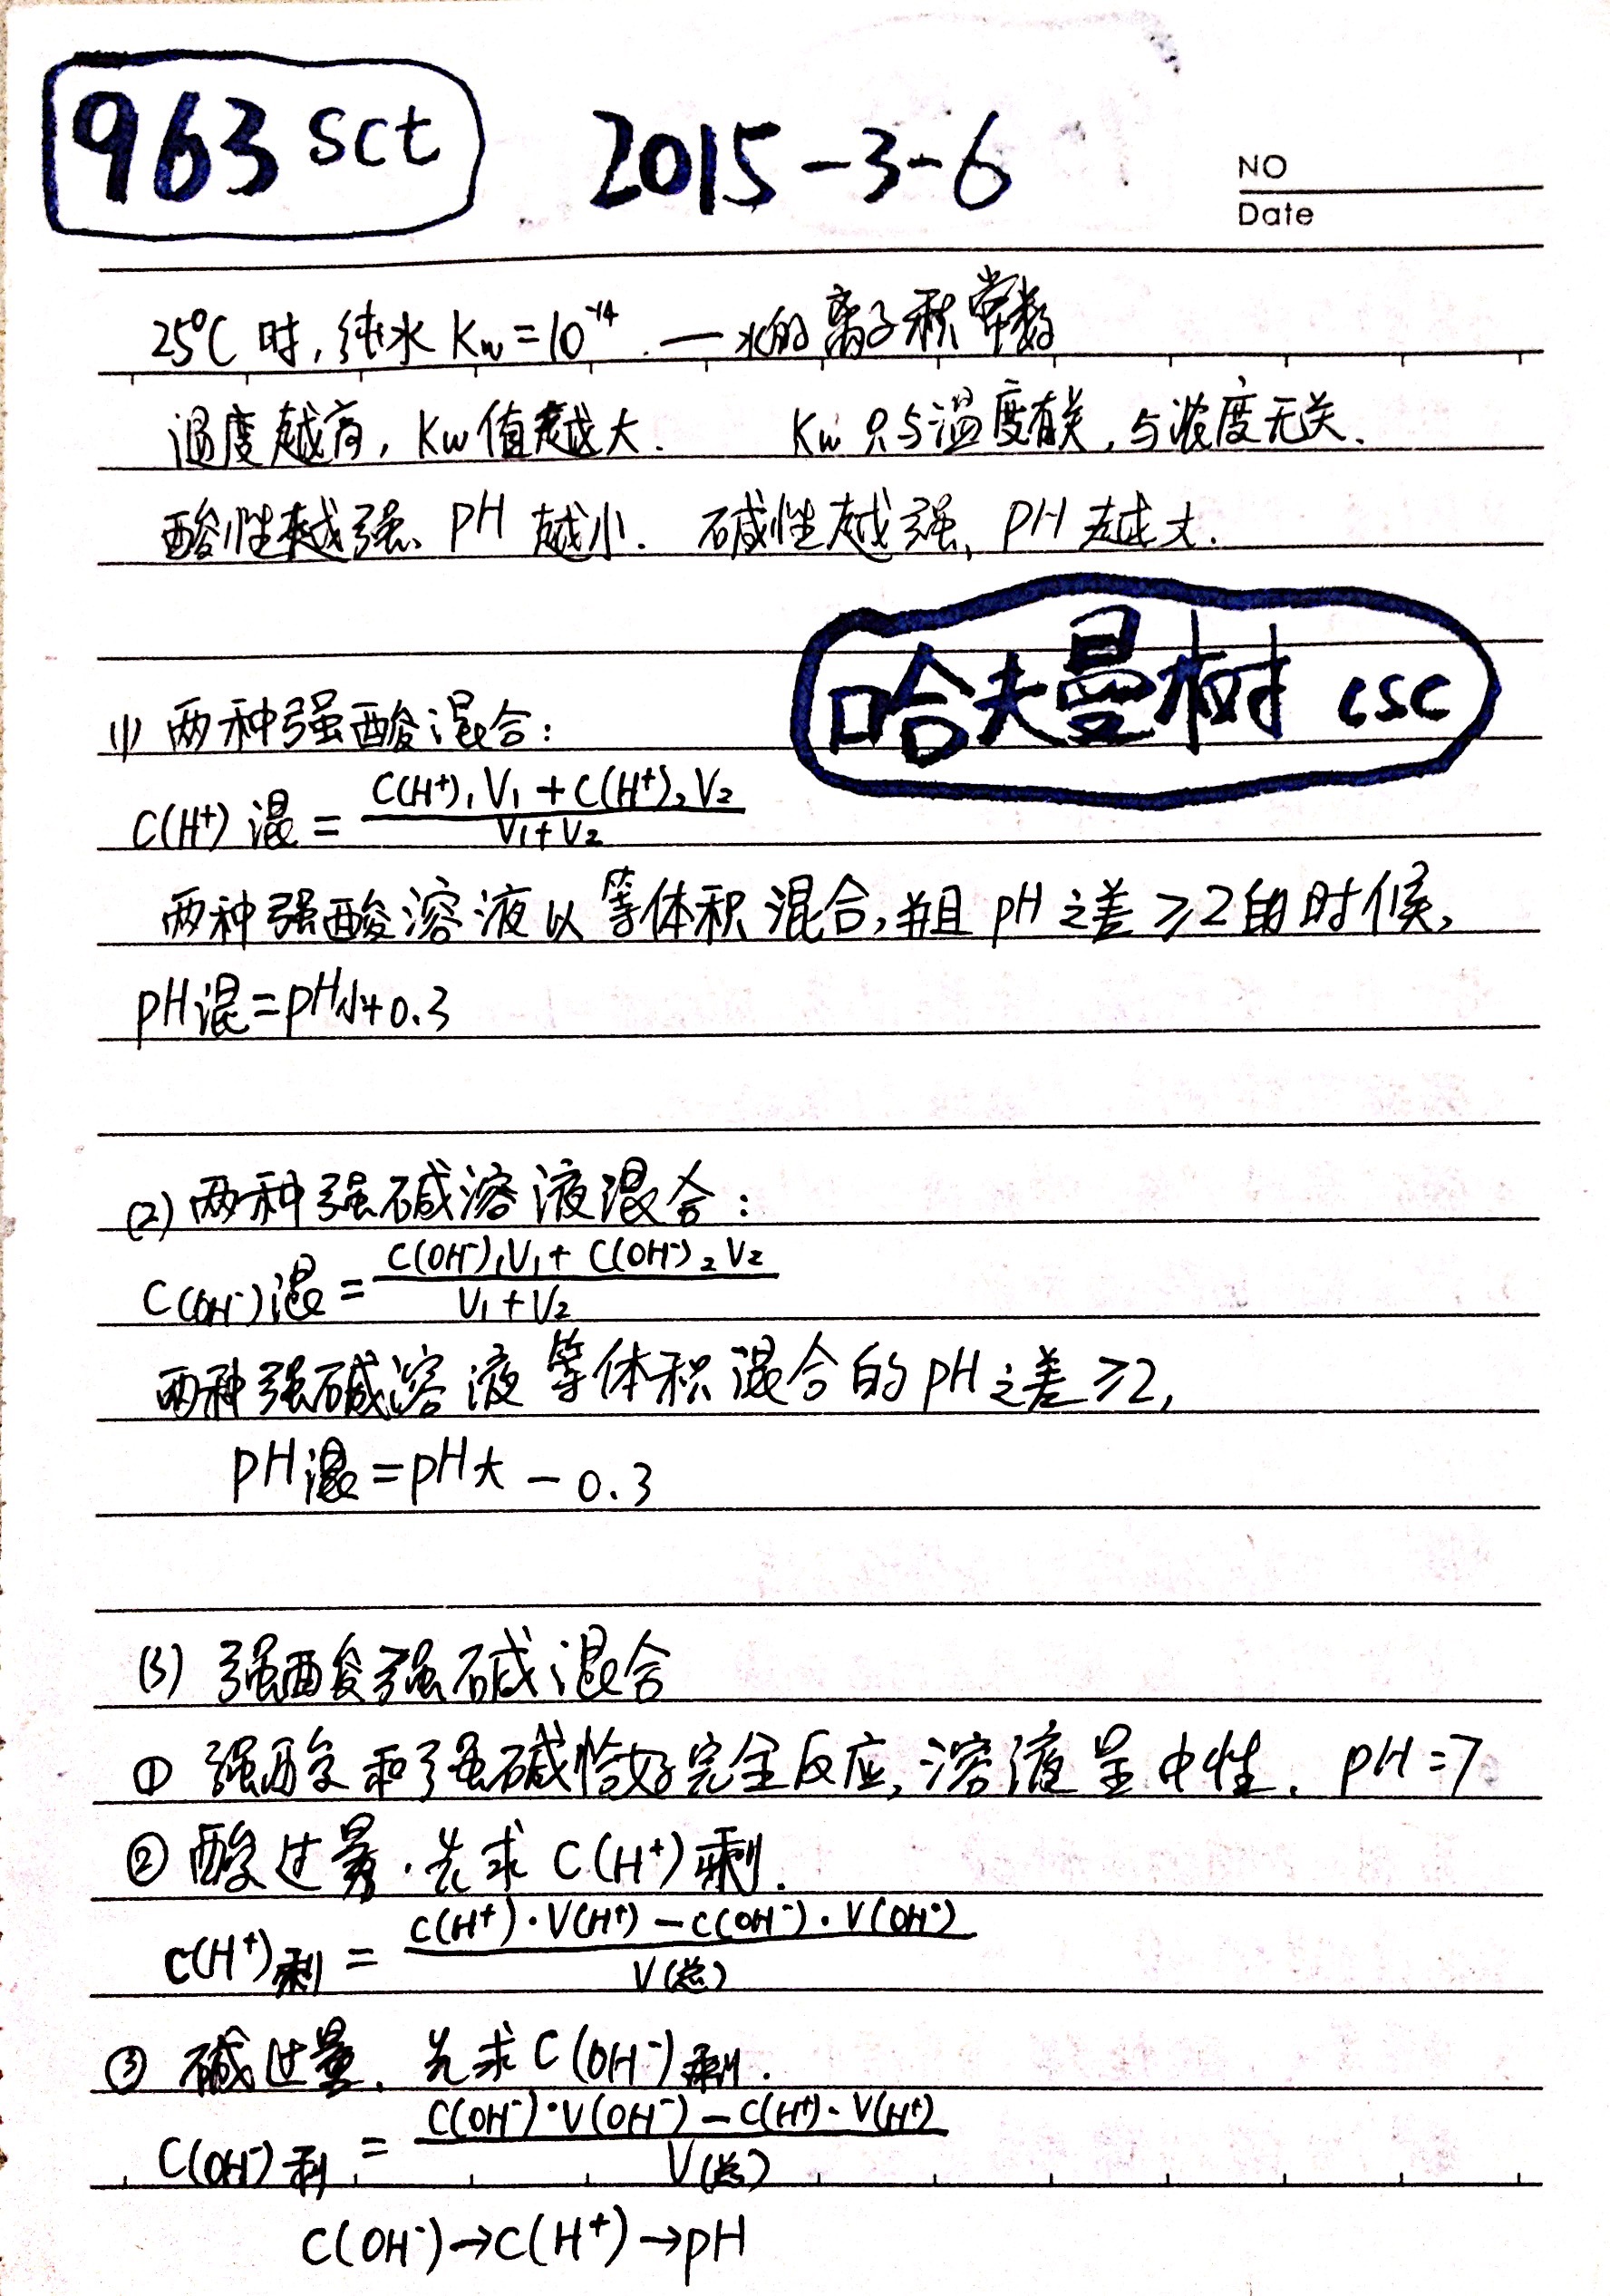 963 sct
2015-3-6
NO
Date
25℃ 时,纯水 Kw=10⁻¹⁴.—水的离子积常数
温度越高, Kw值越大. Kw 只与温度有关,与浓度无关.
酸性越强、PH 越小. 碱性越强, PH 越大.
哈夫曼树 csc
(1) 两种强酸混合:
C(H⁺)混 = (C(H⁺)₁V₁ + C(H⁺)₂V₂)/(V₁+V₂)
两种强酸溶液以等体积混合,并且 pH 之差 ≥2 的时候,
pH混=pH小+0.3
(2) 两种强碱溶液混合:
C(OH⁻)混 = (C(OH⁻)₁V₁ + C(OH⁻)₂V₂)/(V₁+V₂)
两种强碱溶液等体积混合的pH之差≥2,
PH混=pH大-0.3
(3) 强酸强碱混合
① 强酸和强碱恰好完全反应,溶液呈中性. pH=7
② 酸过量.先求 C(H⁺)剩.
C(H⁺)剩 = (C(H⁺)·V(H⁺)-C(OH⁻)·V(OH⁻))/V(总)
③ 碱过量. 先求C(OH⁻)剩.
C(OH⁻)剩 = (C(OH⁻)·V(OH⁻)-C(H⁺)·V(H⁺))/V(总)
C(OH⁻)→C(H⁺)→pH